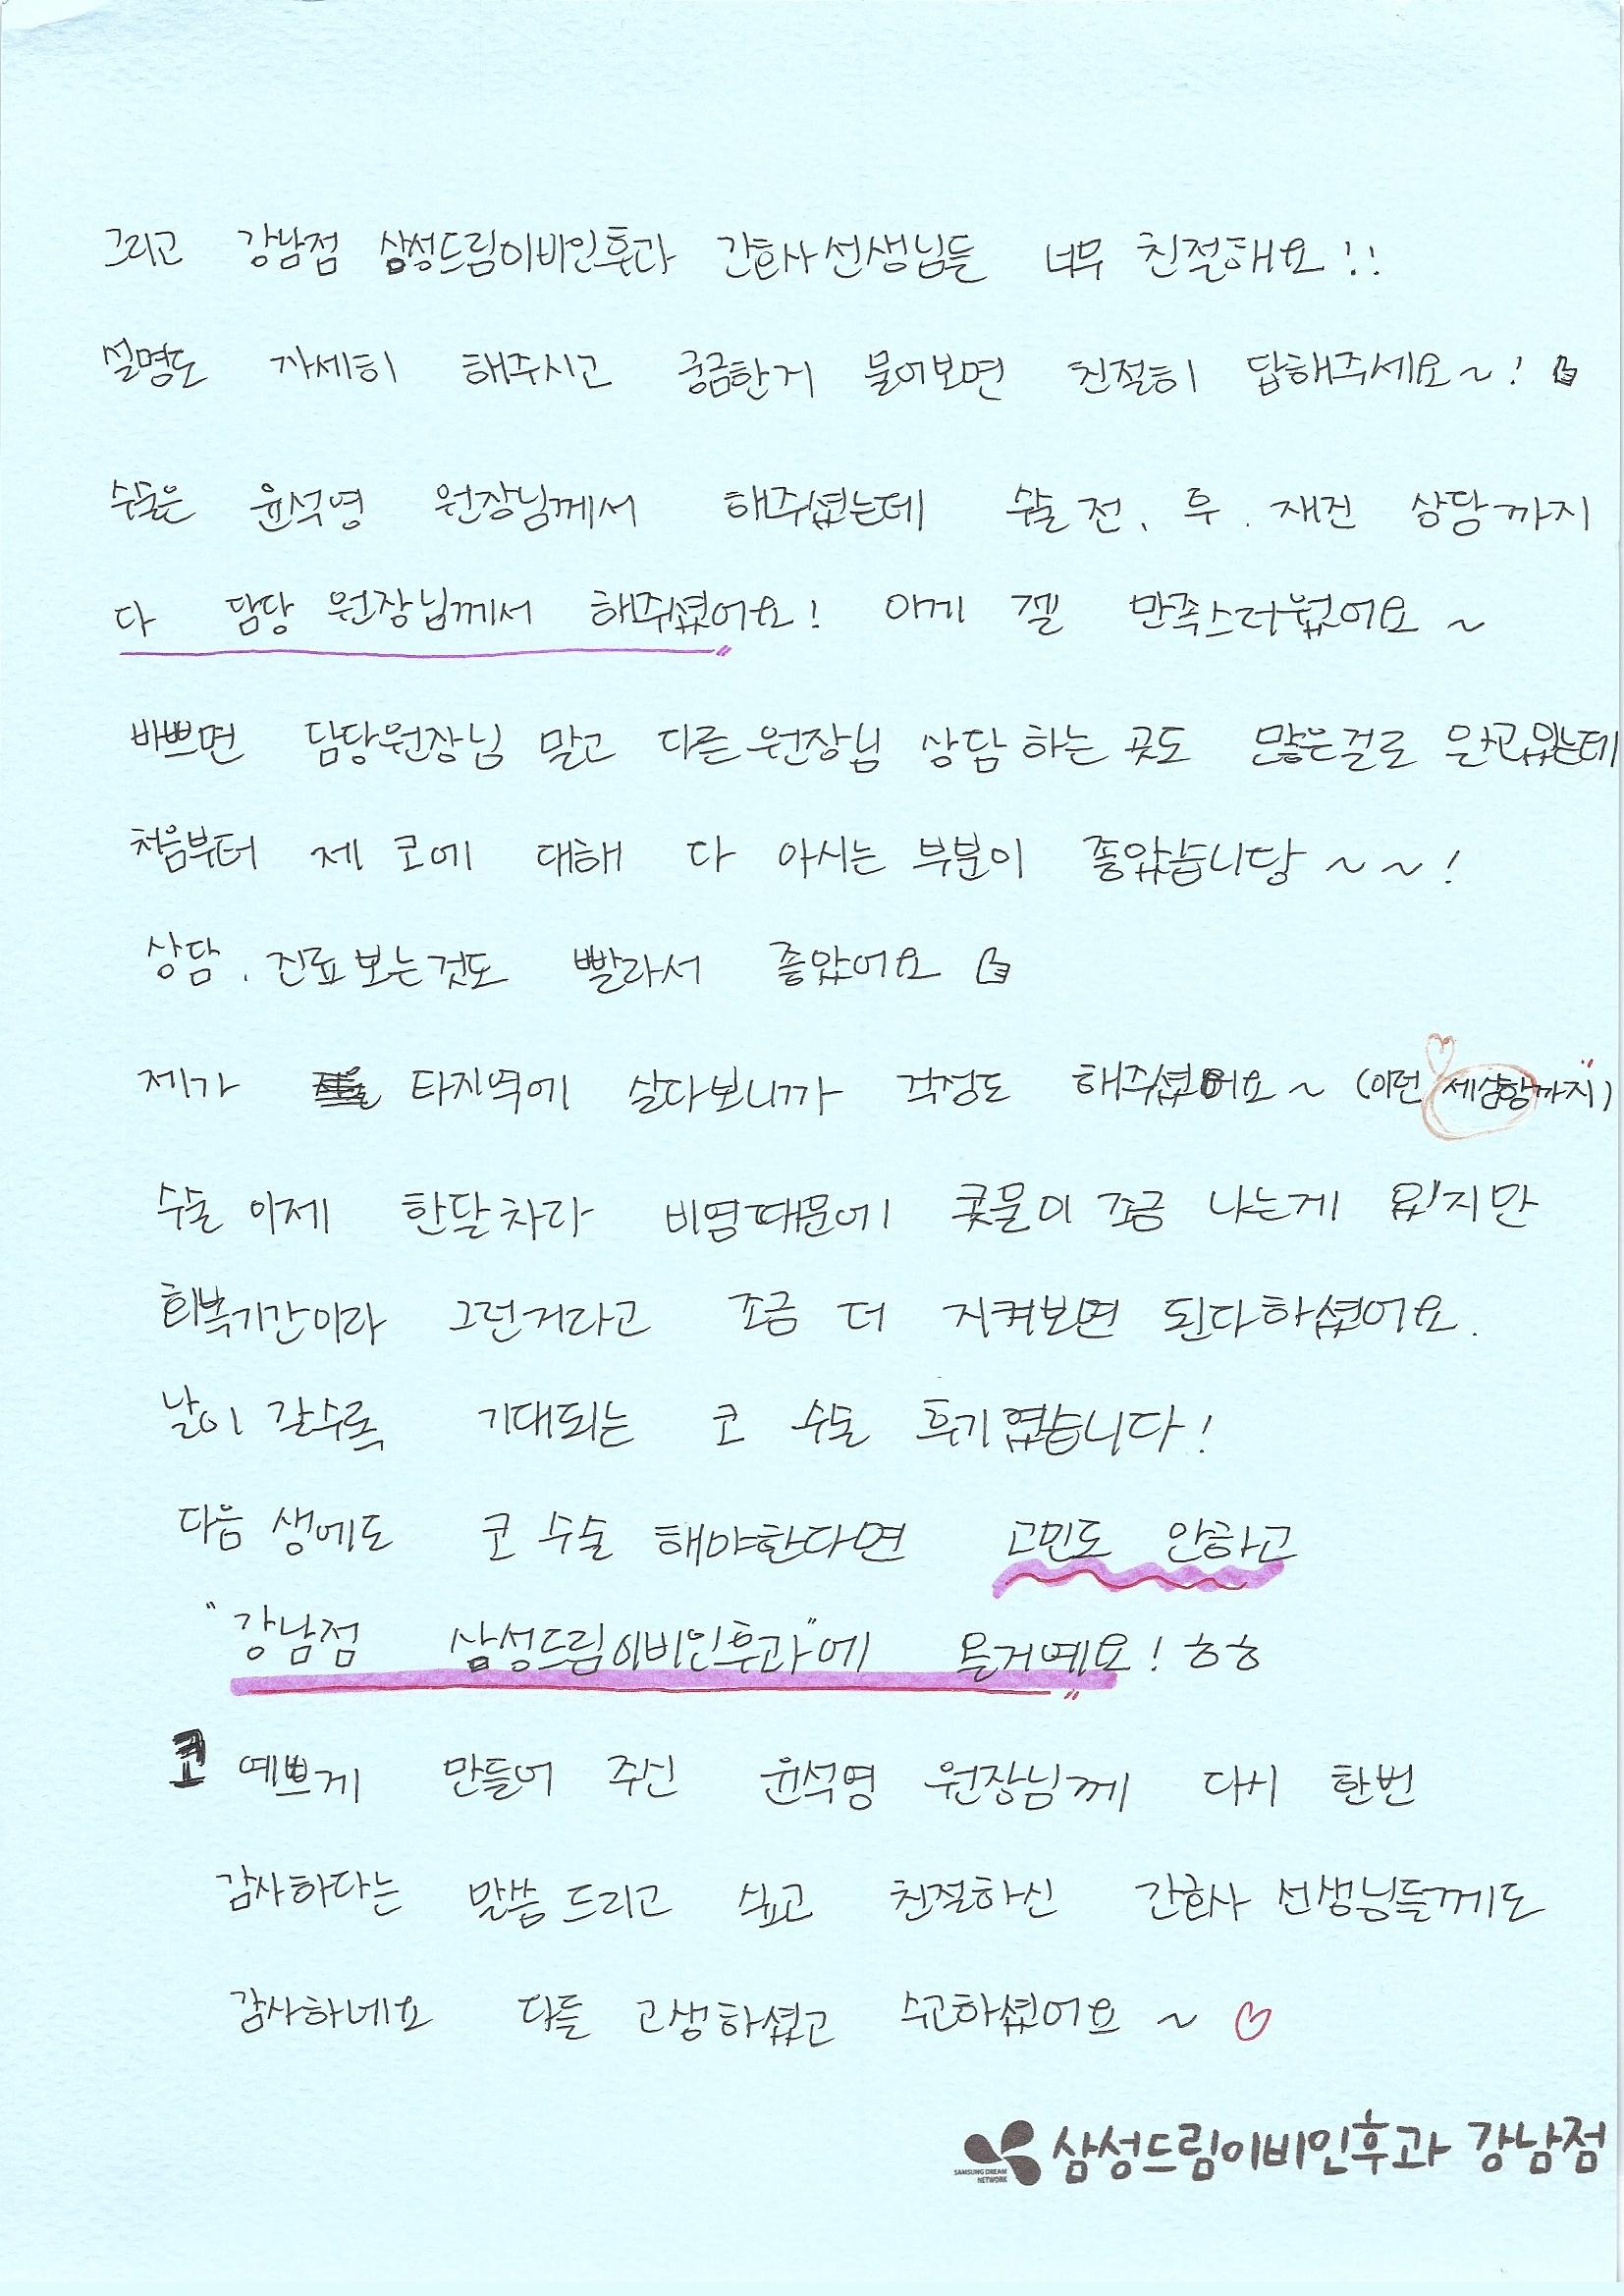 그리고 강남점 삼성드림이비인후과 간호사선생님들 너무 친절해요!!
설명도 자세히 해주시고 궁금한거 물어보면 친절히 답해주세요~!
수술은 윤석영 원장님께서 해주셨는데 수술 전, 후, 재진 상담까지
다 담당 원장님께서 해주셨어요! 이게 젤 만족스러웠어요~
바쁘면 담당원장님 말고 다른원장님 상담하는 곳도 많은걸로 알고있는데
처음부터 제 코에 대해 다 아시는 부분이 좋았습니당~~!
상담, 진료보는것도 빨라서 좋았어요
제가 타지역에 살다보니까 걱정도 해주셨어요~ (이런 세심함까지)
수술 이제 한달차라 비염때문에 콧물이 조금 나는게 있지만
회복기간이라 그런거라고 조금 더 지켜보면 된다하셨어요.
날이 갈수록 기대되는 코 수술 후기였습니다!
다음 생에도 코 수술 해야한다면 고민도 안하고
"강남점 삼성드림이비인후과"에 올거예요! ㅎㅎ
코 예쁘게 만들어 주신 윤석영 원장님께 다시 한번
감사하다는 말씀드리고 싶고 친절하신 간호사 선생님들께도
감사하네요 다들 고생하셨고 수고하셨어요~ ♡
SAMSUNG DREAM NETWORK 삼성드림이비인후과 강남점